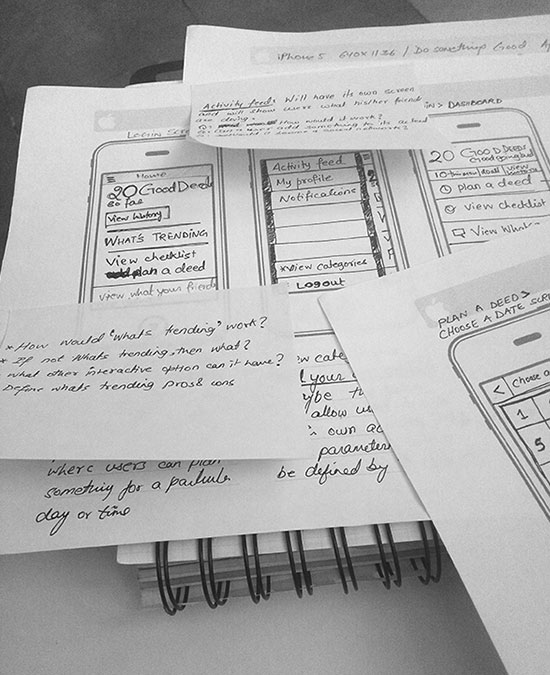 iPhone 5 640x1136 / Do something Good
Activity feed: Will have its own screen
and will show users what his/her friends
are doing.
would it work?
user add something to its activity
become a social network?
LOGIN SCRE
Home
20 GoodDeeds
so far
View history
WHAT'S TRENDING
View checklist
plan a deed
View what your friends
Activity feed
My profile
Notifications
*View categories
LOGOUT
> DASHBOARD
20 GOOD DEEDS
Good going bud
View
plan a deed
View checklist
View What
* How would 'Whats trending' work?
* If not Whats trending, then what?
what other interactive option can it have?
Define whats trending pros & cons
where users can plan
something for a particular
day or time
your
allow
own
parameter
be defined by
PLAN A DEED >
CHOOSE A DATE SCRE
< Choose a
1
5